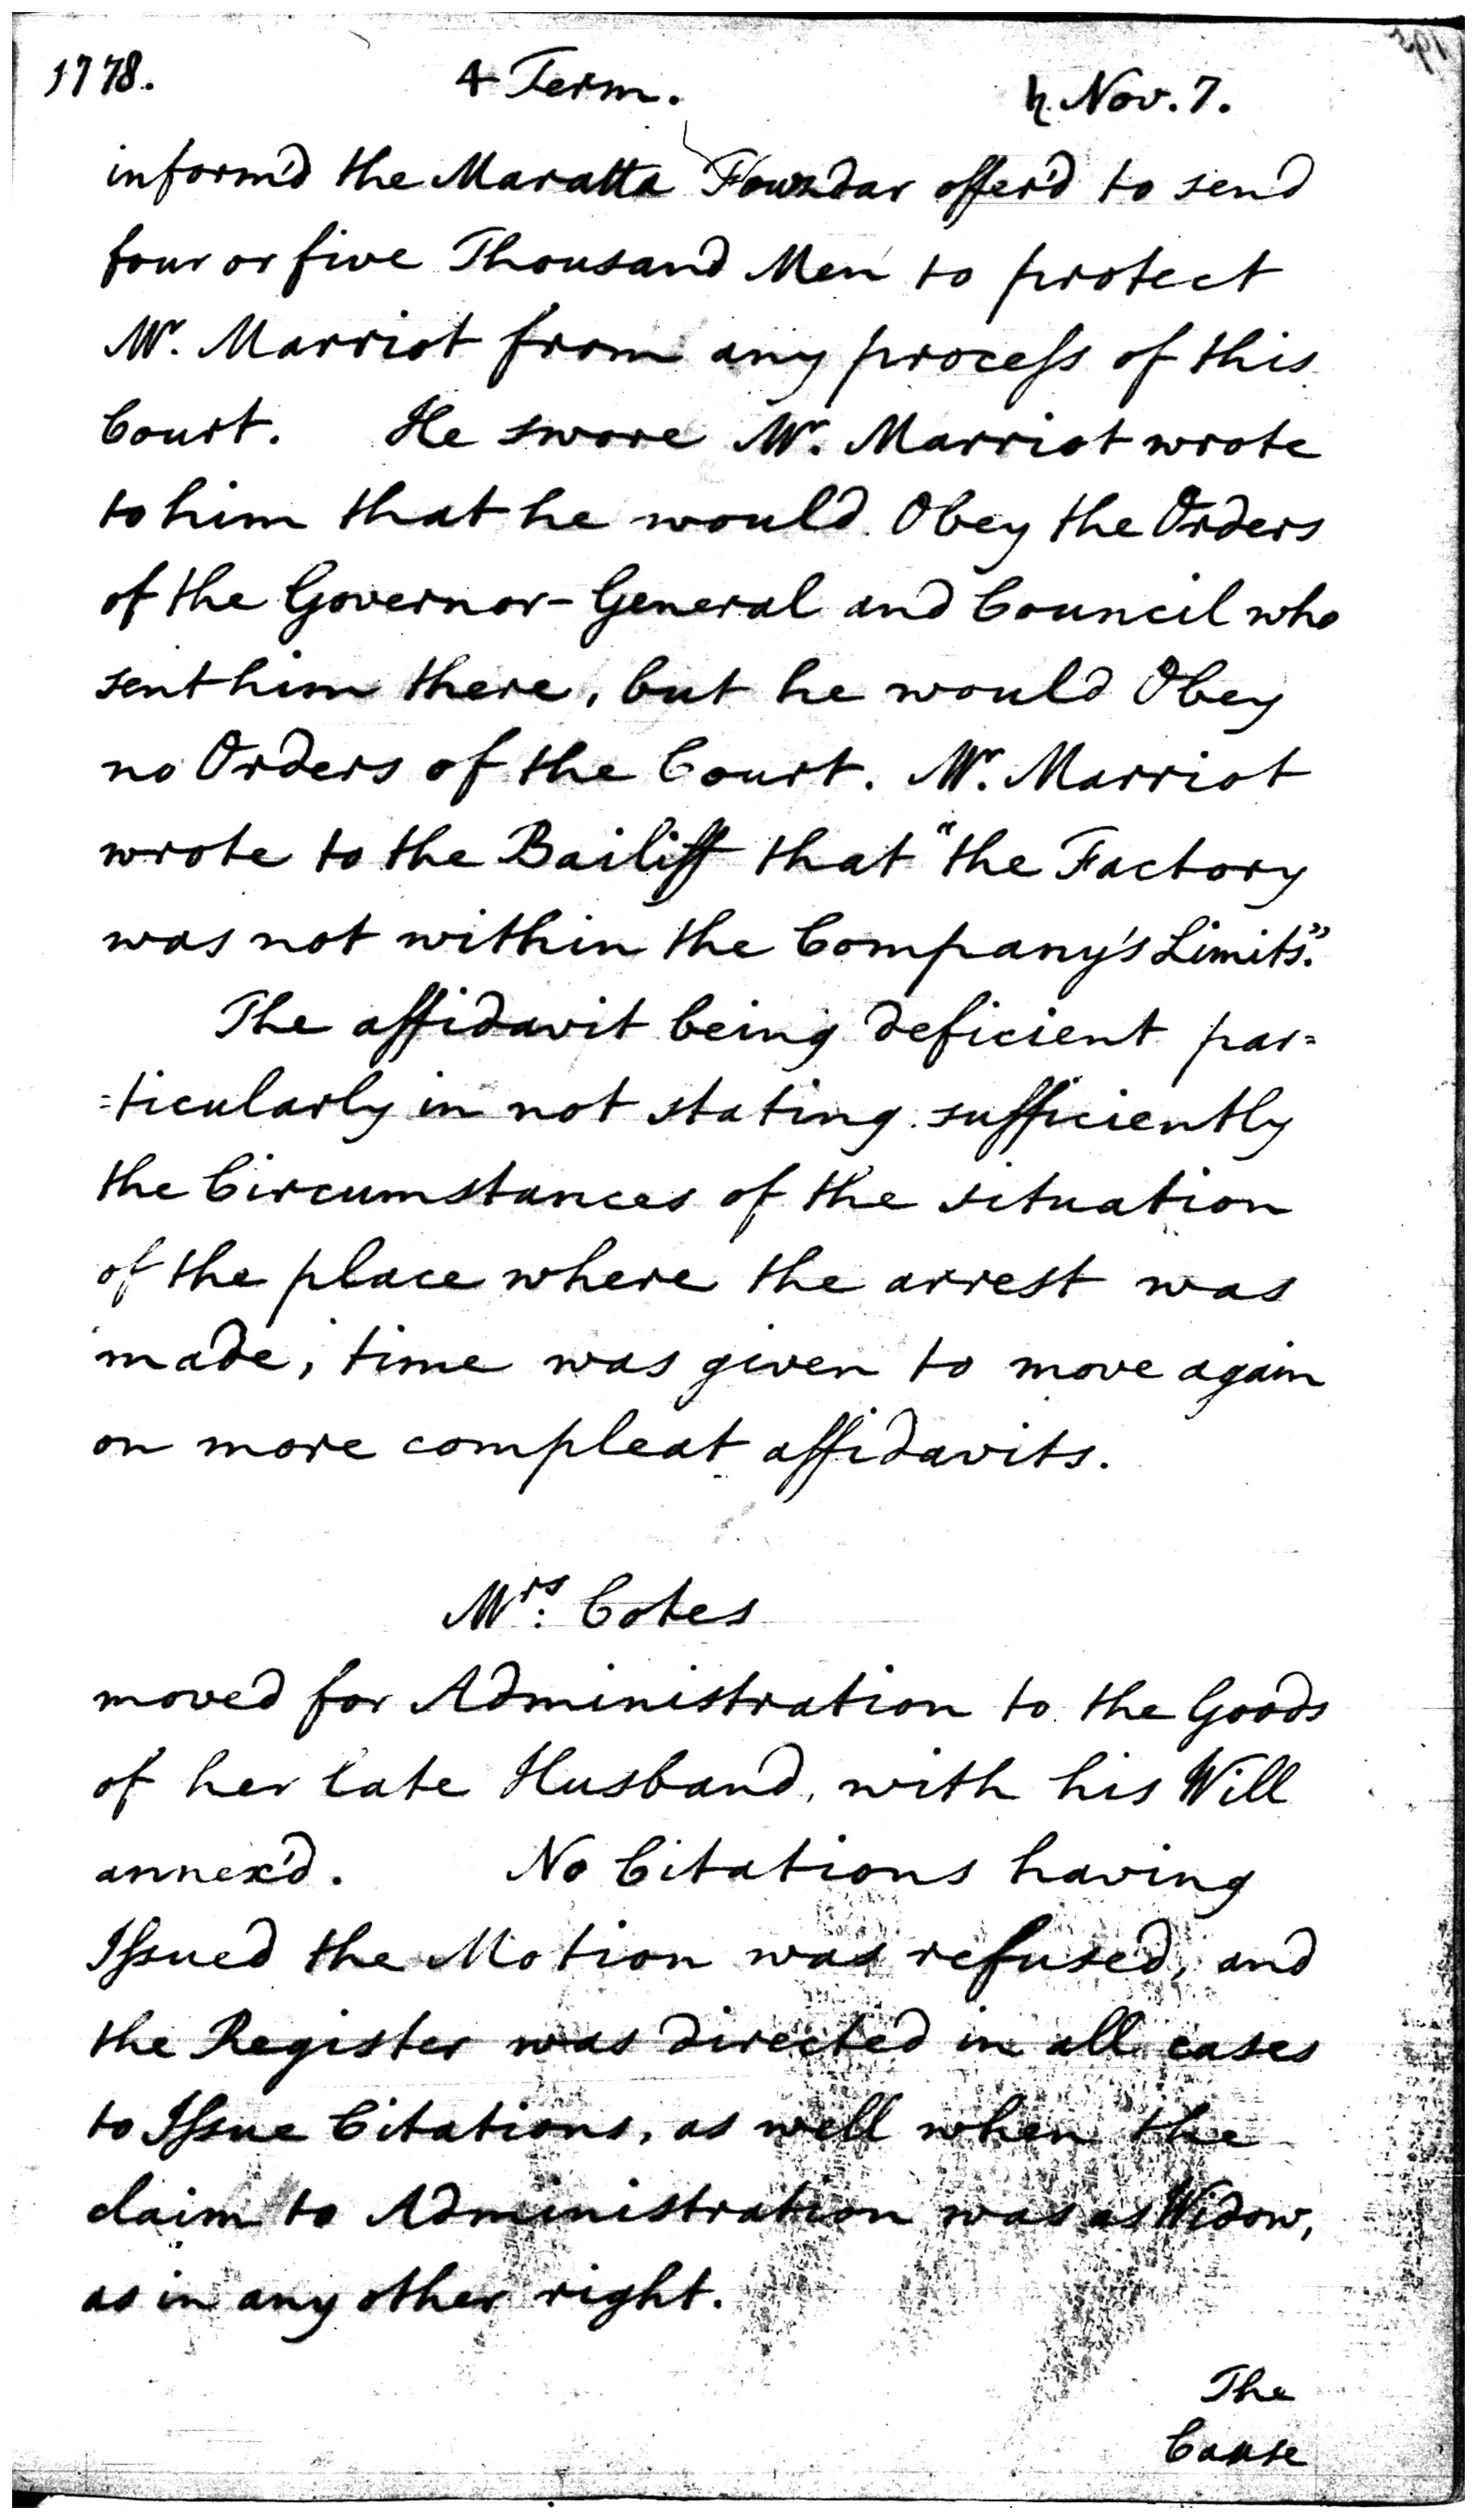 1778. 4 Term. ♄ Nov. 7.
inform'd the Maratta Fouzdar offer'd to send
four or five Thousand Men to protect
Mr. Marriot from any process of this
Court. He swore Mr. Marriot wrote
to him that he would Obey the Orders
of the Governor-General and Council who
sent him there, but he would Obey
no Orders of the Court. Mr. Marriot
wrote to the Bailiff that "the Factory
was not within the Company's Limits."
The affidavit being deficient par=
=ticularly in not stating sufficiently
the Circumstances of the situation
of the place where the arrest was
made, time was given to move again
on more compleat affidavits.
Mrs: Cotes
moved for Administration to the Goods
of her late Husband, with his Will
annex'd. No Citations having
Issued the Motion was refused, and
the Register was directed in all cases
to Issue Citations, as well when the
claim to Administration was as Widow,
as in any other right.
The
Cause